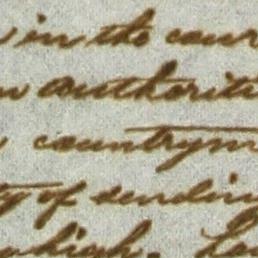 in the cour
authoriti
countrym
ty of sendin
which. La